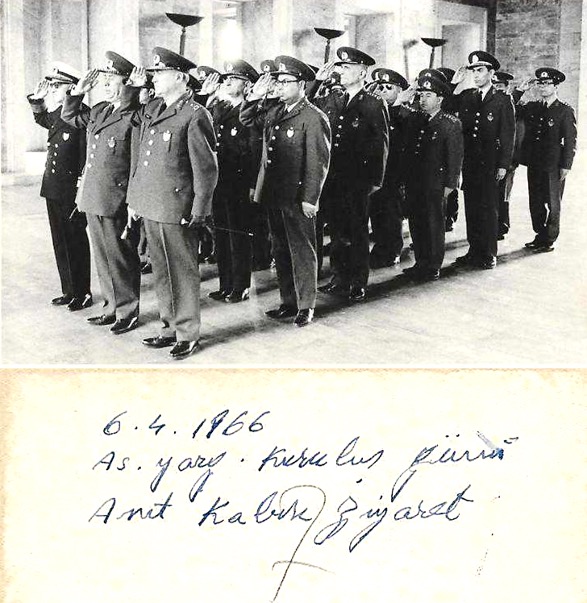 6.4.1966
As. yarg. kuruluş günü
Anıt Kabir Ziyaret